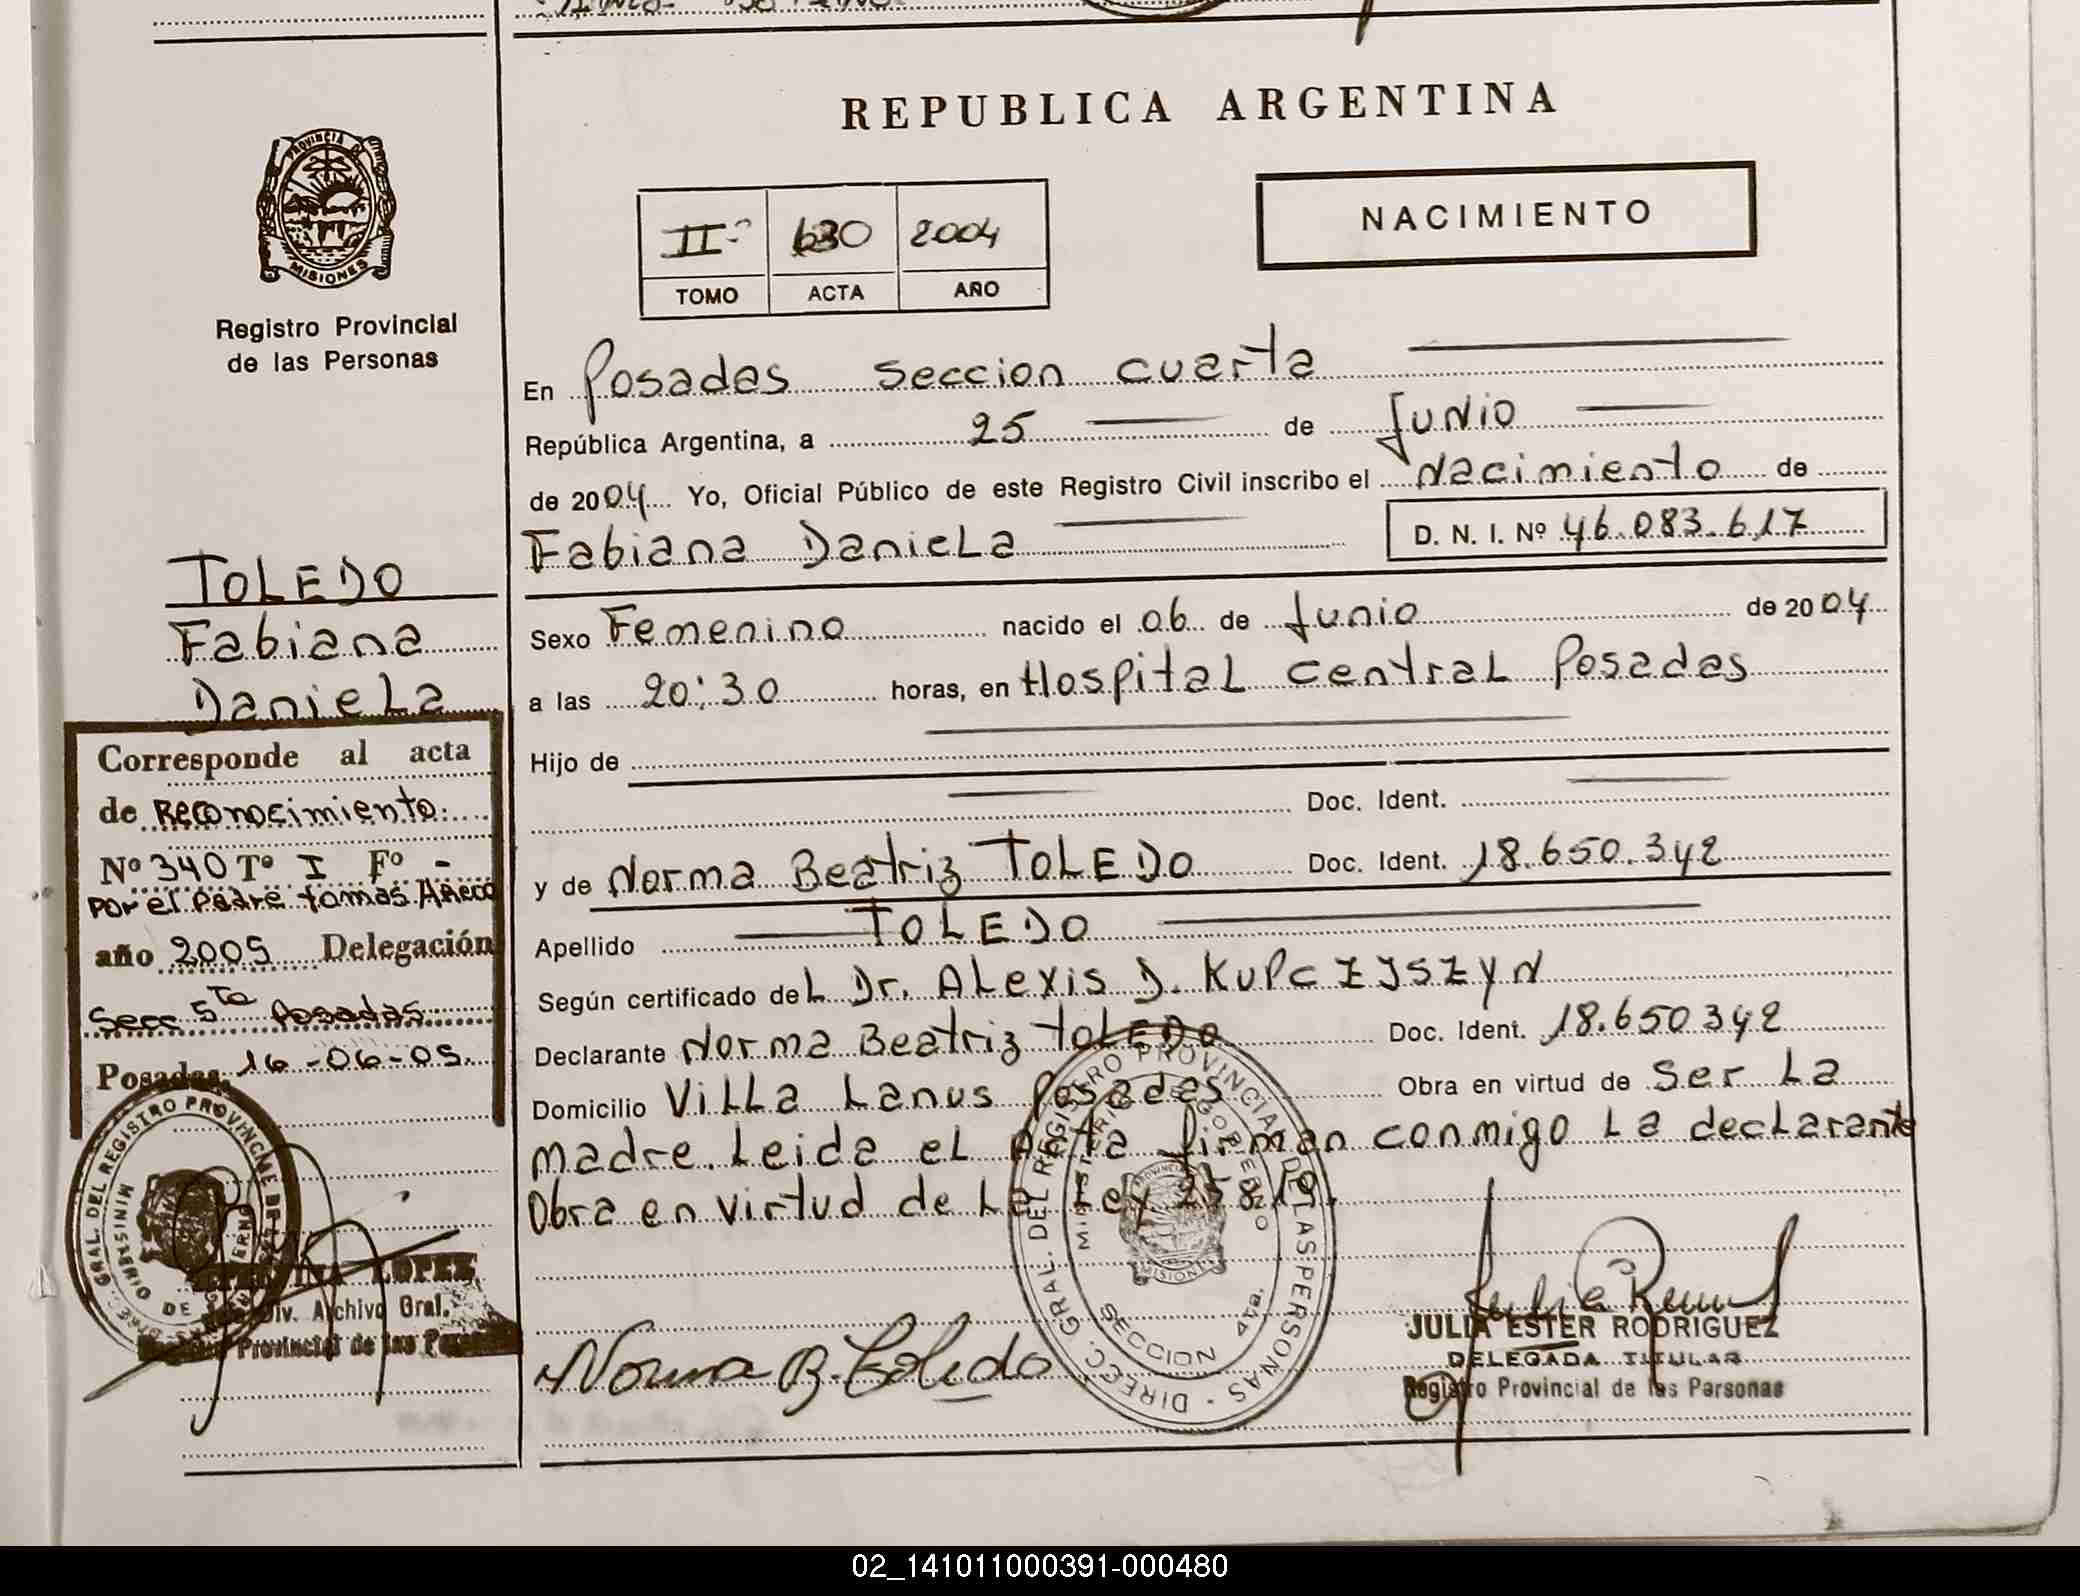 REPUBLICA ARGENTINA
PROVINCIA DE
MISIONES
Registro Provincial
de las Personas
II 630 2004
TOMO ACTA AÑO
NACIMIENTO
En Posadas seccion cuarta
República Argentina, a 25 de Junio
de 2004 Yo, Oficial Público de este Registro Civil inscribo el Nacimiento de
Fabiana Daniela D. N. I. Nº 46.083.617
Sexo Femenino nacido el 06 de Junio de 2004
a las 20:30 horas, en Hospital central Posadas
Hijo de
Doc. Ident.
y de Norma Beatriz TOLEDO Doc. Ident. 18.650.342
Apellido TOLEDO
Según certificado del Dr. Alexis D. KUPCZJSZYN
Declarante Norma Beatriz TOLEDO Doc. Ident. 18.650342
Domicilio Villa Lanus Posadas Obra en virtud de ser la
madre. Leida el Acta firman conmigo la declarante
Obra en virtud de la Ley
TOLEDO
Fabiana
Daniela
Corresponde al acta
de Reconocimiento.
Nº 340 Tº I Fº -
por el padre tomas
año 2005 Delegación
Secc 5ta Posadas
Posadas, 16-06-05.
DIREC. GRAL. DEL REGISTRO PROVINCIAL DE
LOPEZ
Div. Archivo Gral.
Provincial de las
Norma B. Toledo
DIREC. GRAL. DEL REGISTRO PROVINCIAL DE LAS PERSONAS
MINISTERIO GOBIERNO
MISIONES
SECCION 4ta.
JULIA ESTER RODRIGUEZ
DELEGADA TITULAR
Registro Provincial de las Personas
02_141011000391-000480